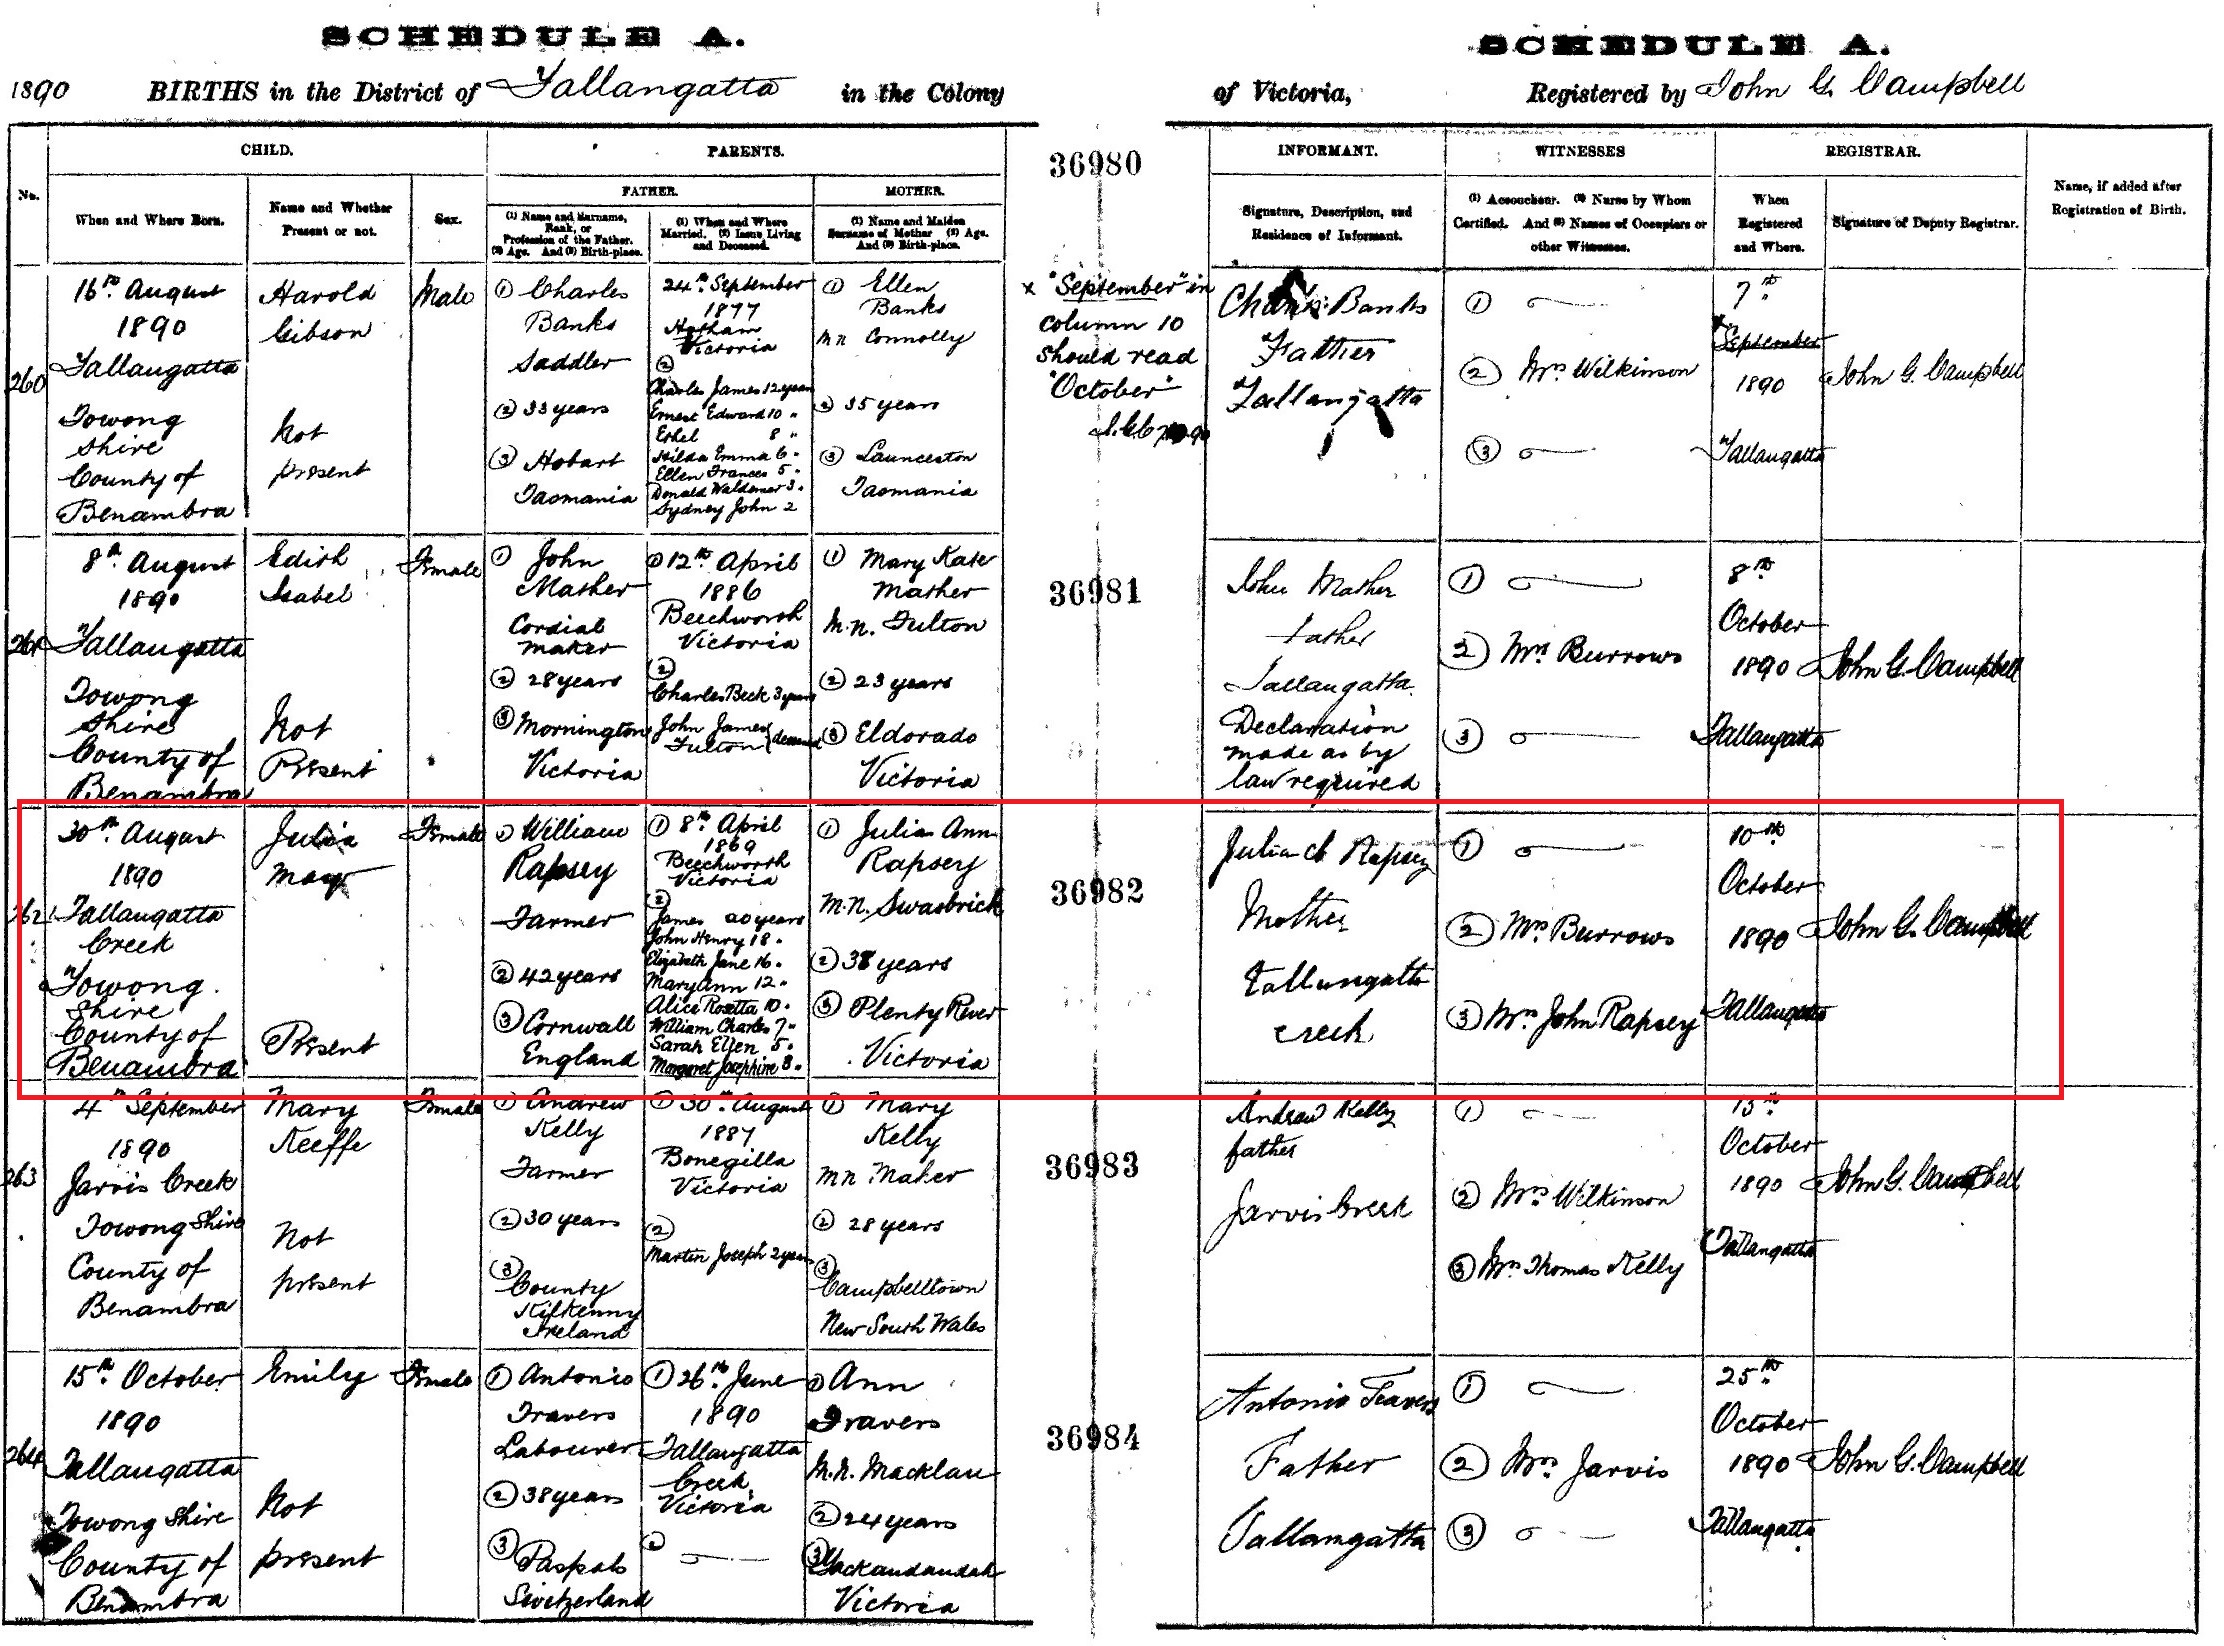 SCHEDULE A.
SCHEDULE A.
1890 BIRTHS in the District of Tallangatta in the Colony
of Victoria, Registered by John G. Campbell
CHILD.
PARENTS.
36980
INFORMANT.
WITNESSES
REGISTRAR.
No.
When and Where Born.
Name and Whether
Present or not.
Sex.
FATHER.
(1) Name and Surname,
Rank, or
Profession of the Father.
(2) Age. And (3) Birth-place.
(1) When and Where
Married. (2) Issue Living
and Deceased.
MOTHER.
(1) Name and Maiden
Surname of Mother (2) Age.
And (3) Birth-place.
Signature, Description, and
Residence of Informant.
(1) Accoucheur. (2) Name by Whom
Certified. And (3) Names of Occupiers or
other Witnesses.
When
Registered
and Where.
Signature of Deputy Registrar.
Name, if added after
Registration of Birth.
260
16th August
1890
Tallangatta
Towong
Shire
County of
Benambra
Harold
Gibson
Not
present
Male
(1) Charles
Banks
Saddler
(2) 33 years
(3) Hobart
Tasmania
24th September
1877
Hotham
Victoria
(2)
Charles James 12 years
Ernest Edward 10 "
Ethel 8 "
Hilda Emma 6 "
Ellen Frances 5 "
Donald Waldemar 3 "
Sydney John 2
(1) Ellen
Banks
mn Connolly
(2) 35 years
(3) Launceston
Tasmania
x "September" in
column 10
should read
"October"
Banks
Father
Tallangatta
(1)
(2) Mrs Wilkinson
(3)
7th
x September
1890
Tallangatta
John G. Campbell
261
8th August
1890
Tallangatta
Towong
Shire
County of
Benambra
Edith
Isabel
Not
Present
Female
(1) John
Mather
Cordial
maker
(2) 28 years
(3) Mornington
Victoria
(1) 12th April
1886
Beechworth
Victoria
(2)
Charles Beck 3 years
John James
Fulton
(1) Mary Kate
Mather
M.N. Fulton
(2) 23 years
(3) Eldorado
Victoria
36981
John Mather
Father
Tallangatta.
Declaration
made as by
law required
(1)
(2) Mrs Burrows
(3)
8th
October
1890
Tallangatta
John G. Campbell
262
30th August
1890
Tallangatta
Creek
Towong
Shire
County of
Benambra
Julia
May
Present
Female
(1) William
Rapsey
Farmer
(2) 42 years
(3) Cornwall
England
(1) 8th April
1869
Beechworth
Victoria
(2)
James 20 years
John Henry 18 "
Elizabeth Jane 16 "
Mary Ann 12 "
Alice Rosetta 10 "
William Charles 7 "
Sarah Ellen 5 "
Margaret Josephine 3 "
(1) Julia Ann
Rapsey
M.N. Swasbrick
(2) 38 years
(3) Plenty River
Victoria
36982
Julia A Rapsey
Mother
Tallangatta
creek
(1)
(2) Mrs Burrows
(3) Mrs John Rapsey
10th
October
1890
Tallangatta
John G. Campbell
263
4th September
1890
Jarvis Creek
Towong Shire
County of
Benambra
Mary
Keeffe
Not
present
Female
(1) Andrew
Kelly
Farmer
(2) 30 years
(3)
County
Kilkenny
Ireland
(1) 30th August
1887
Bonegilla
Victoria
(2)
Martin Joseph 2 years
(1) Mary
Kelly
mn Maher
(2) 28 years
(3)
Campbelltown
New South Wales
36983
Andrew Kelly
father
Jarvis Creek
(1)
(2) Mrs Wilkinson
(3) Mrs Thomas Kelly
October
1890
Tallangatta
John G. Campbell
264
15th October
1890
Tallangatta
Towong Shire
County of
Benambra
Emily
Not
present
Female
(1) Antonio
Travers
Labourer
(2) 38 years
(3)
Switzerland
(1) 26th June
1890
Tallangatta
Creek
Victoria
(2)
(1) Ann
Travers
M.N.
(2) 24 years
(3) Yackandandah
Victoria
36984
Antonio Travers
Father
Tallangatta
(1)
(2) Mrs Jarvis
(3)
25th
October
1890
Tallangatta
John G. Campbell